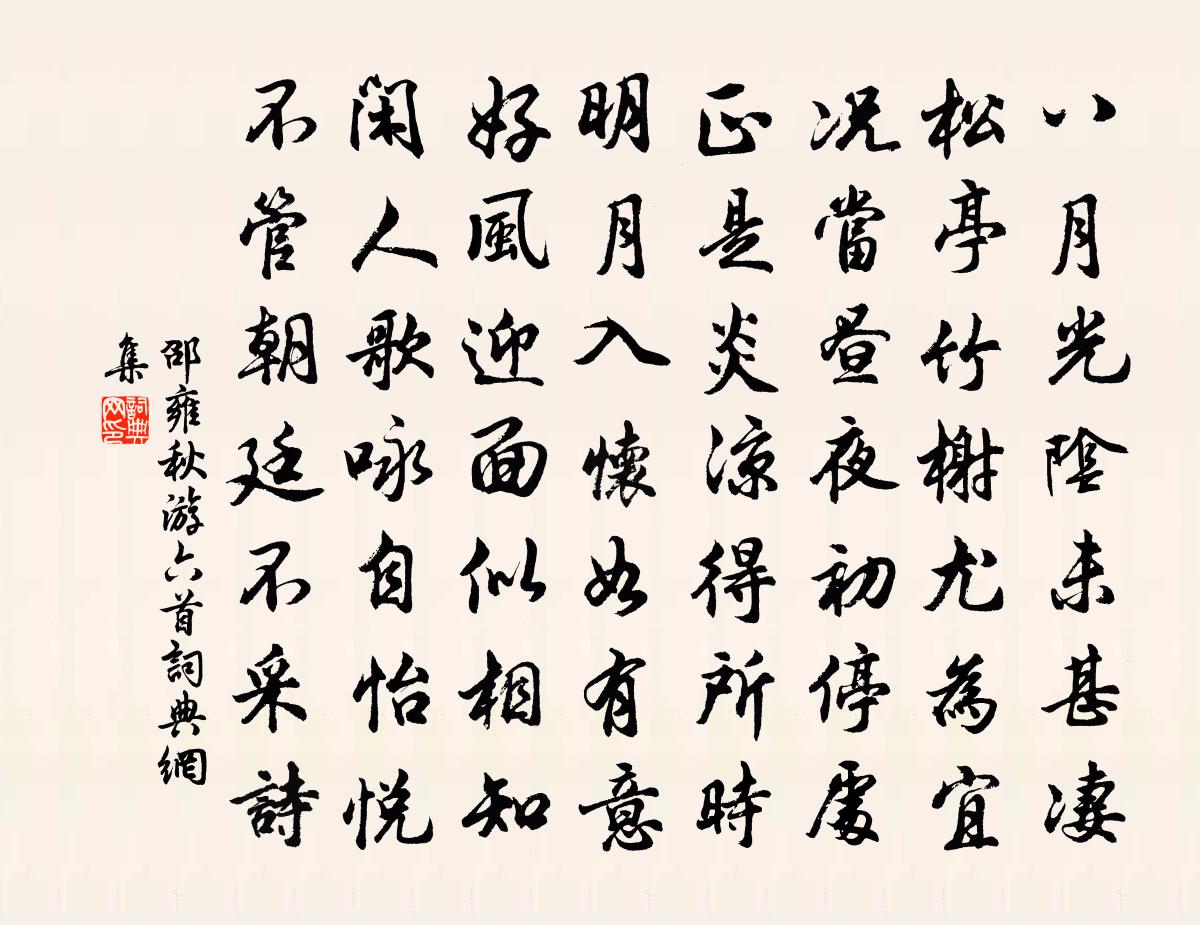 八月光陰未甚凄
松亭竹榭尤為宜
況當晝夜初停處
正是炎涼得所時
明月入懷如有意
好風迎面似相知
閑人歌咏自怡悅
不管朝廷不采詩
邵雍秋游六首詞典網
集
詞典
网印